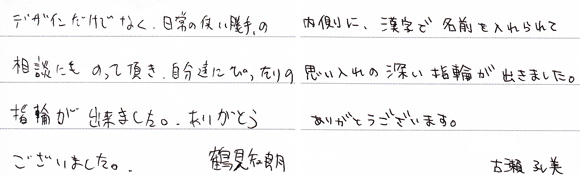 デザインだけでなく、日常の使い勝手の
相談にも のって頂き、自分達にぴったりの
指輪が 出来ました。ありがとう
ございました。
鶴見
内側に、漢字で名前を入れられて
思い入れの深い指輪が出きました。
ありがとうございます。
古瀬 弘美